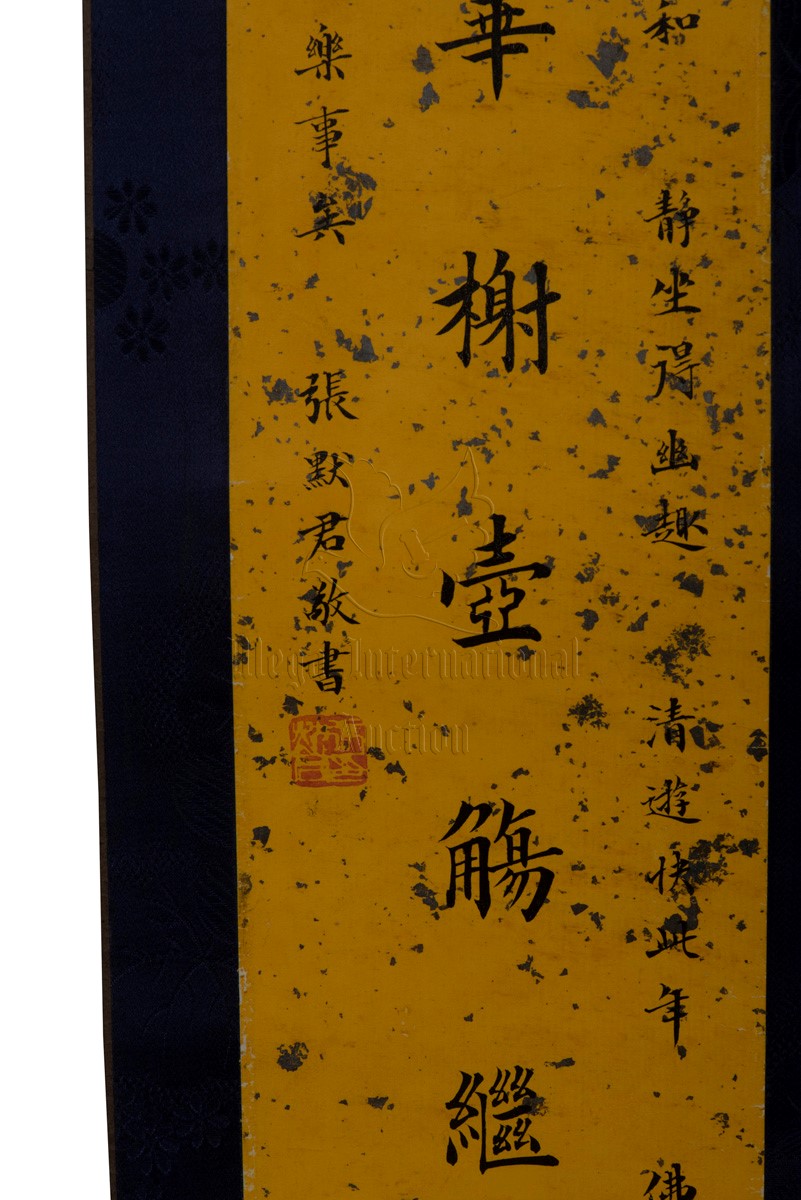 和 靜坐得幽趣 清遊快此年 佛
華榭壺觴繼
樂事矣 張默君敬書
Mega International
Auction